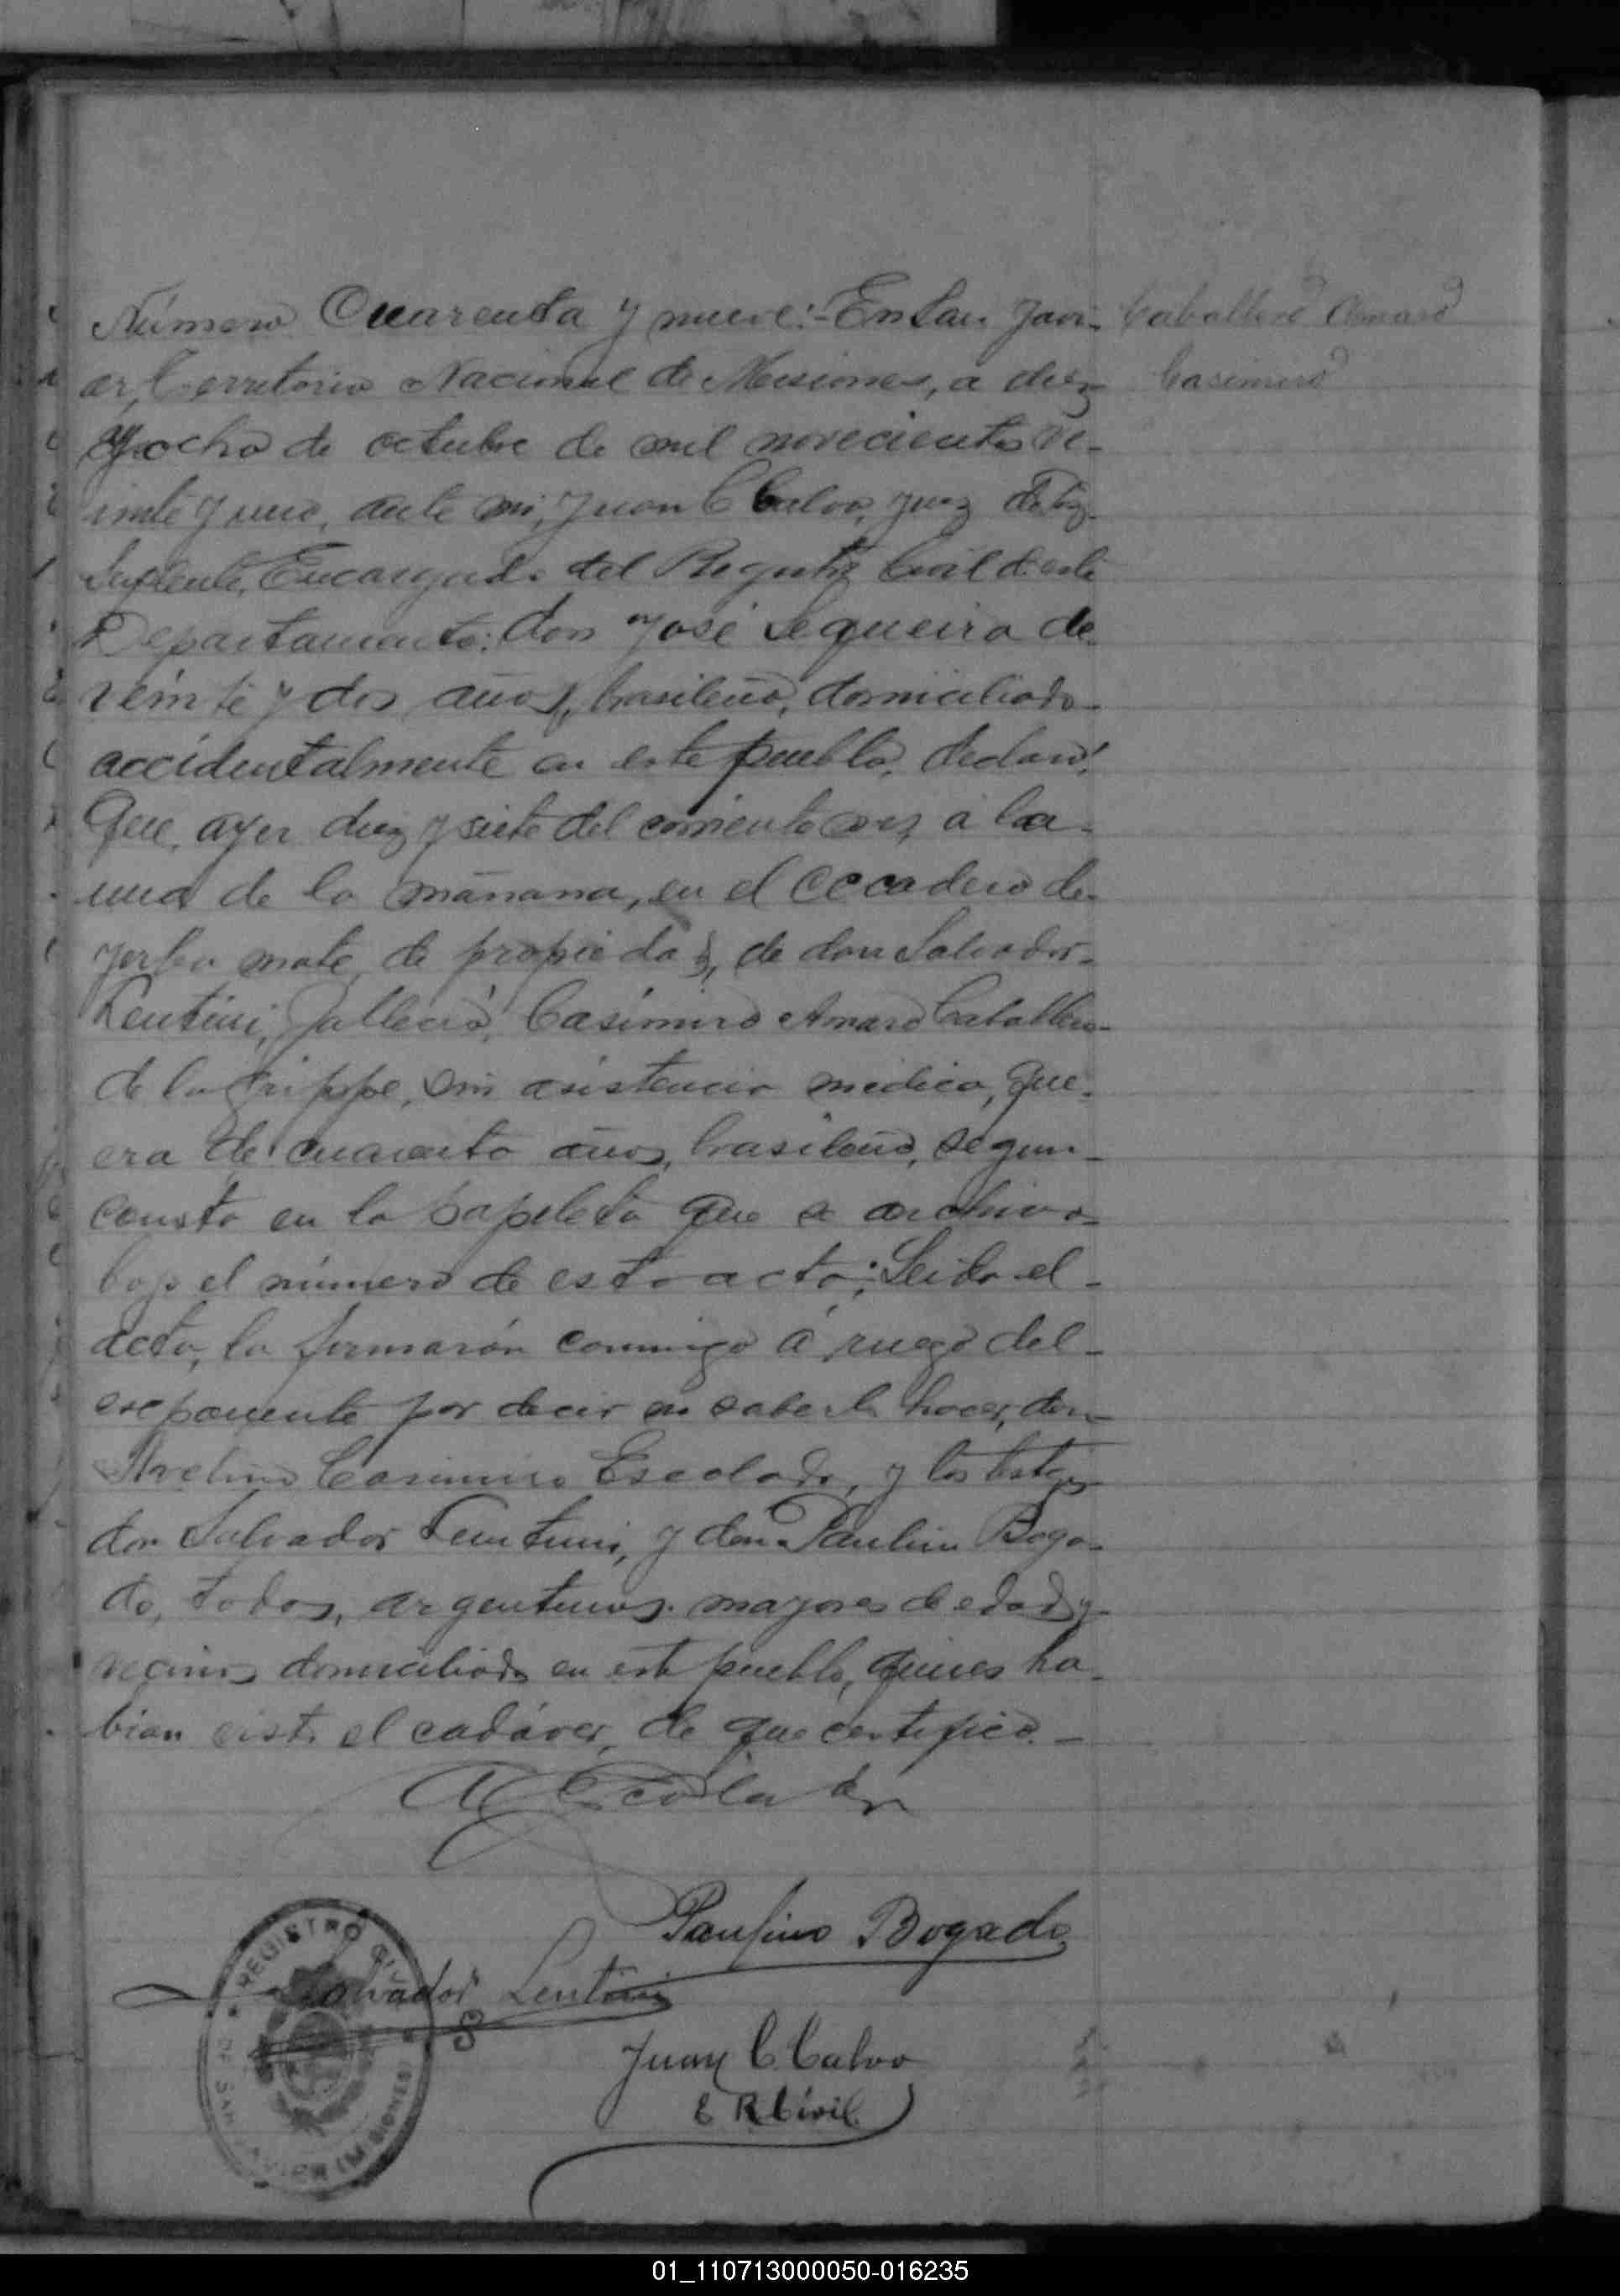 Número Cuarenta y nueve:- En San Javi-
er, Territorio Nacional de Misiones, a diez
y ocho de octubre de mil novecientos ve-
inte y uno, ante mi, Juan C Calvo, Juez de Paz
Suplente, Encargado del Registro Civil de este
Departamento: don José Sequeira de
veinte y dos años, brasileño, domiciliado
accidentalmente en este pueblo, declaró:
Que, ayer diez y siete del corriente mes, a la
una de la mañana, en el cecadero de
yerba mate, de propiedad, de don Salvador
Lentini, falleció, Casimiro Amaro Caballero
de la grippe, sin asistencia medica, que
era de cuarenta años, brasileño, segun
consta en la papeleta que se archiva
bajo el número de esta acta; Leida el
acta, la firmarón conmigo á ruego del
exponente por decir no saberlo hacer, don
Avelino Casimiro Escolado, y los testigos
don Salvador Lentini, y don Paulino Boga-
do, todos, argentinos, mayores de edad y
vecinos domiciliados en este pueblo, quienes ha-
bian visto el cadáver, de que certifico.-
Caballero Amaro
Casimiro
Paulino Bogado
Salvador Lentini
Juan C Calvo
E R Civil
REGISTRO CIVIL
DE SAN JAVIER (MISIONES)
01_110713000050-016235